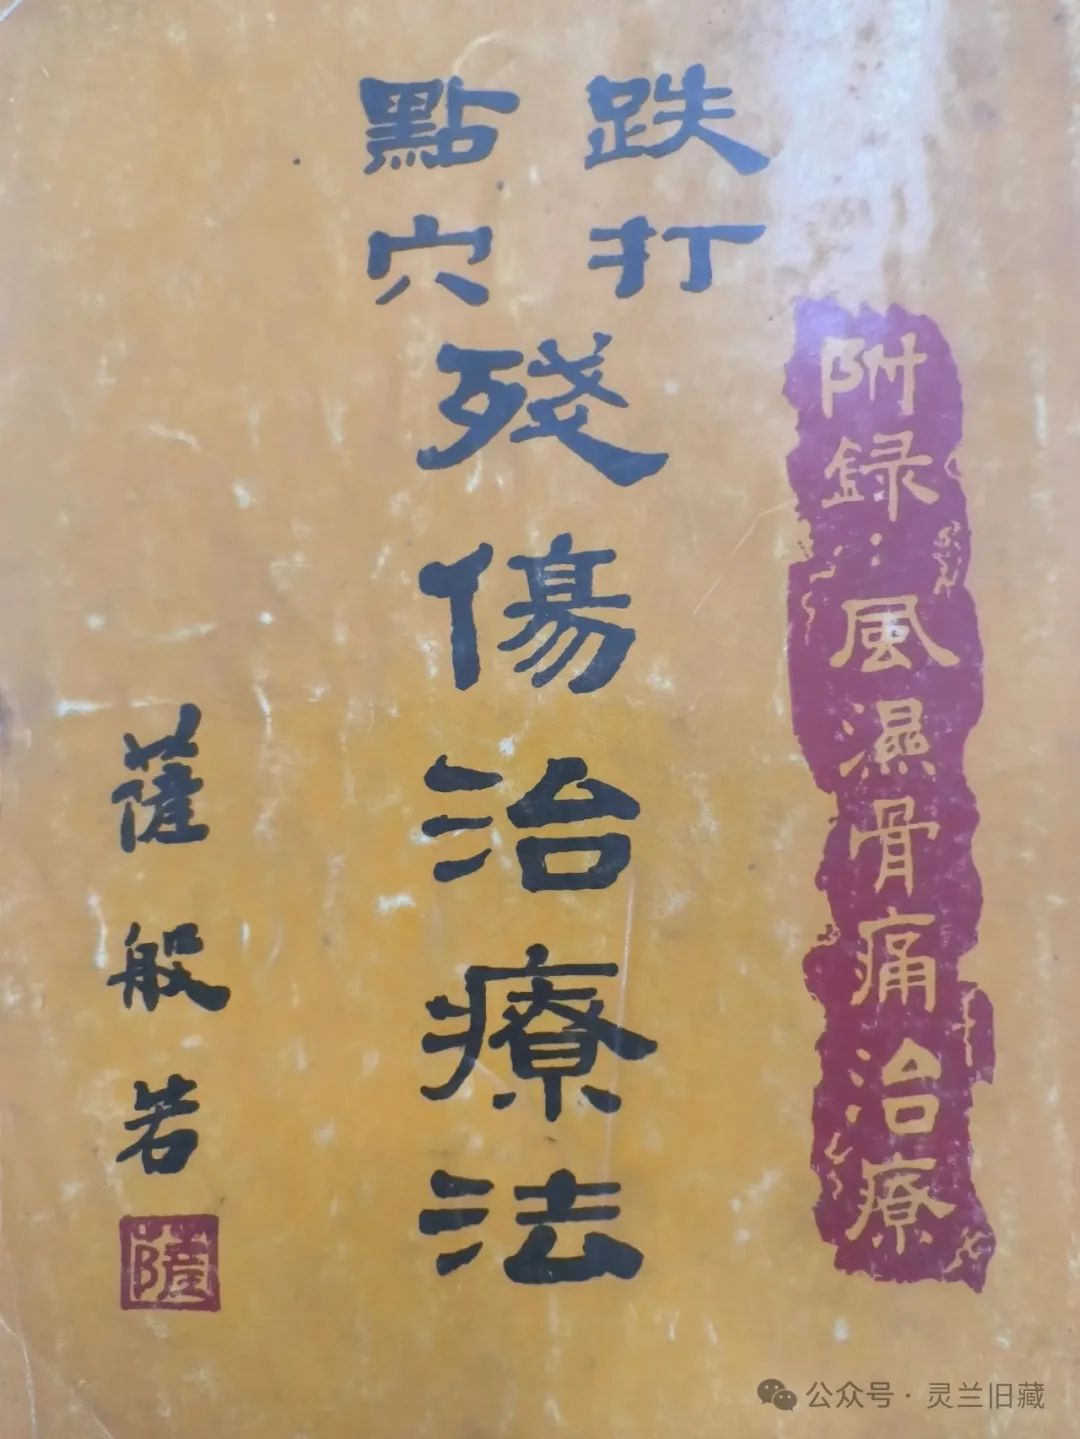 附録：風濕骨痛治療
跌打
點穴
殘傷治療法
薩般若
薩
公众号·灵兰旧藏